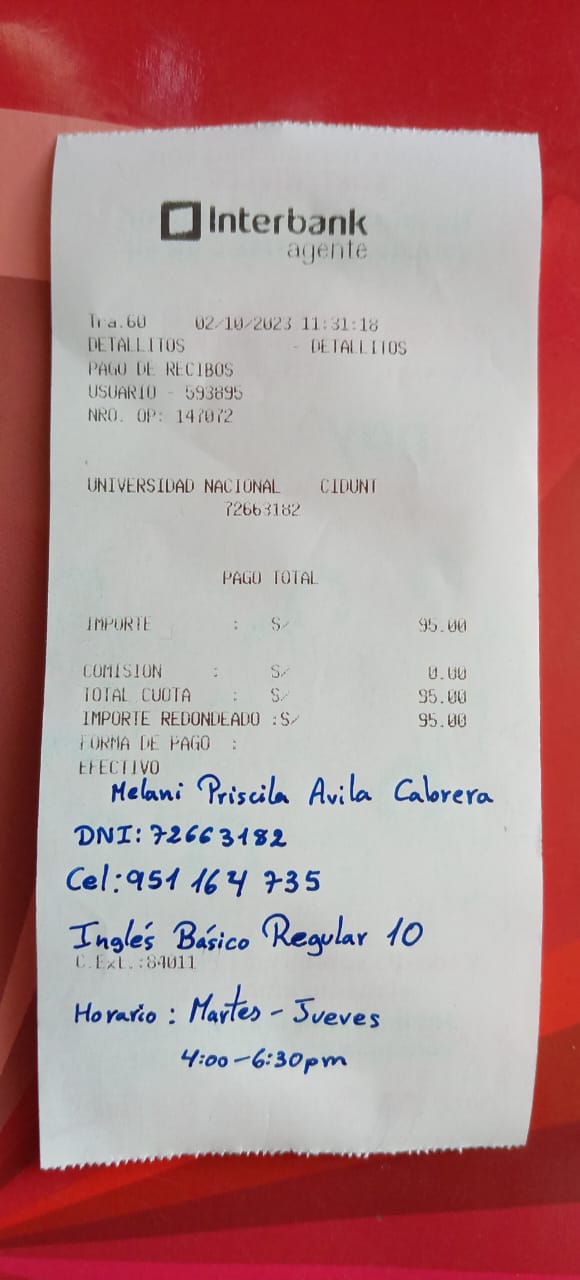 Interbank
agente
Tra.60 02/10/2023 11:31:18
DETALLITOS - DETALLITOS
PAGO DE RECIBOS
USUARIO - 593895
NRO. OP: 147072
UNIVERSIDAD NACIONAL CIDUNT
72663182
PAGO TOTAL
IMPORTE : S/ 95.00
COMISION : S/ 0.00
TOTAL CUOTA : S/ 95.00
IMPORTE REDONDEADO :S/ 95.00
FORMA DE PAGO :
EFECTIVO
Melani Priscila Avila Cabrera
DNI: 72663182
Cel: 951 164 735
Inglés Básico Regular 10
C.Ext.:84011
Horario : Martes - Jueves
4:00-6:30pm